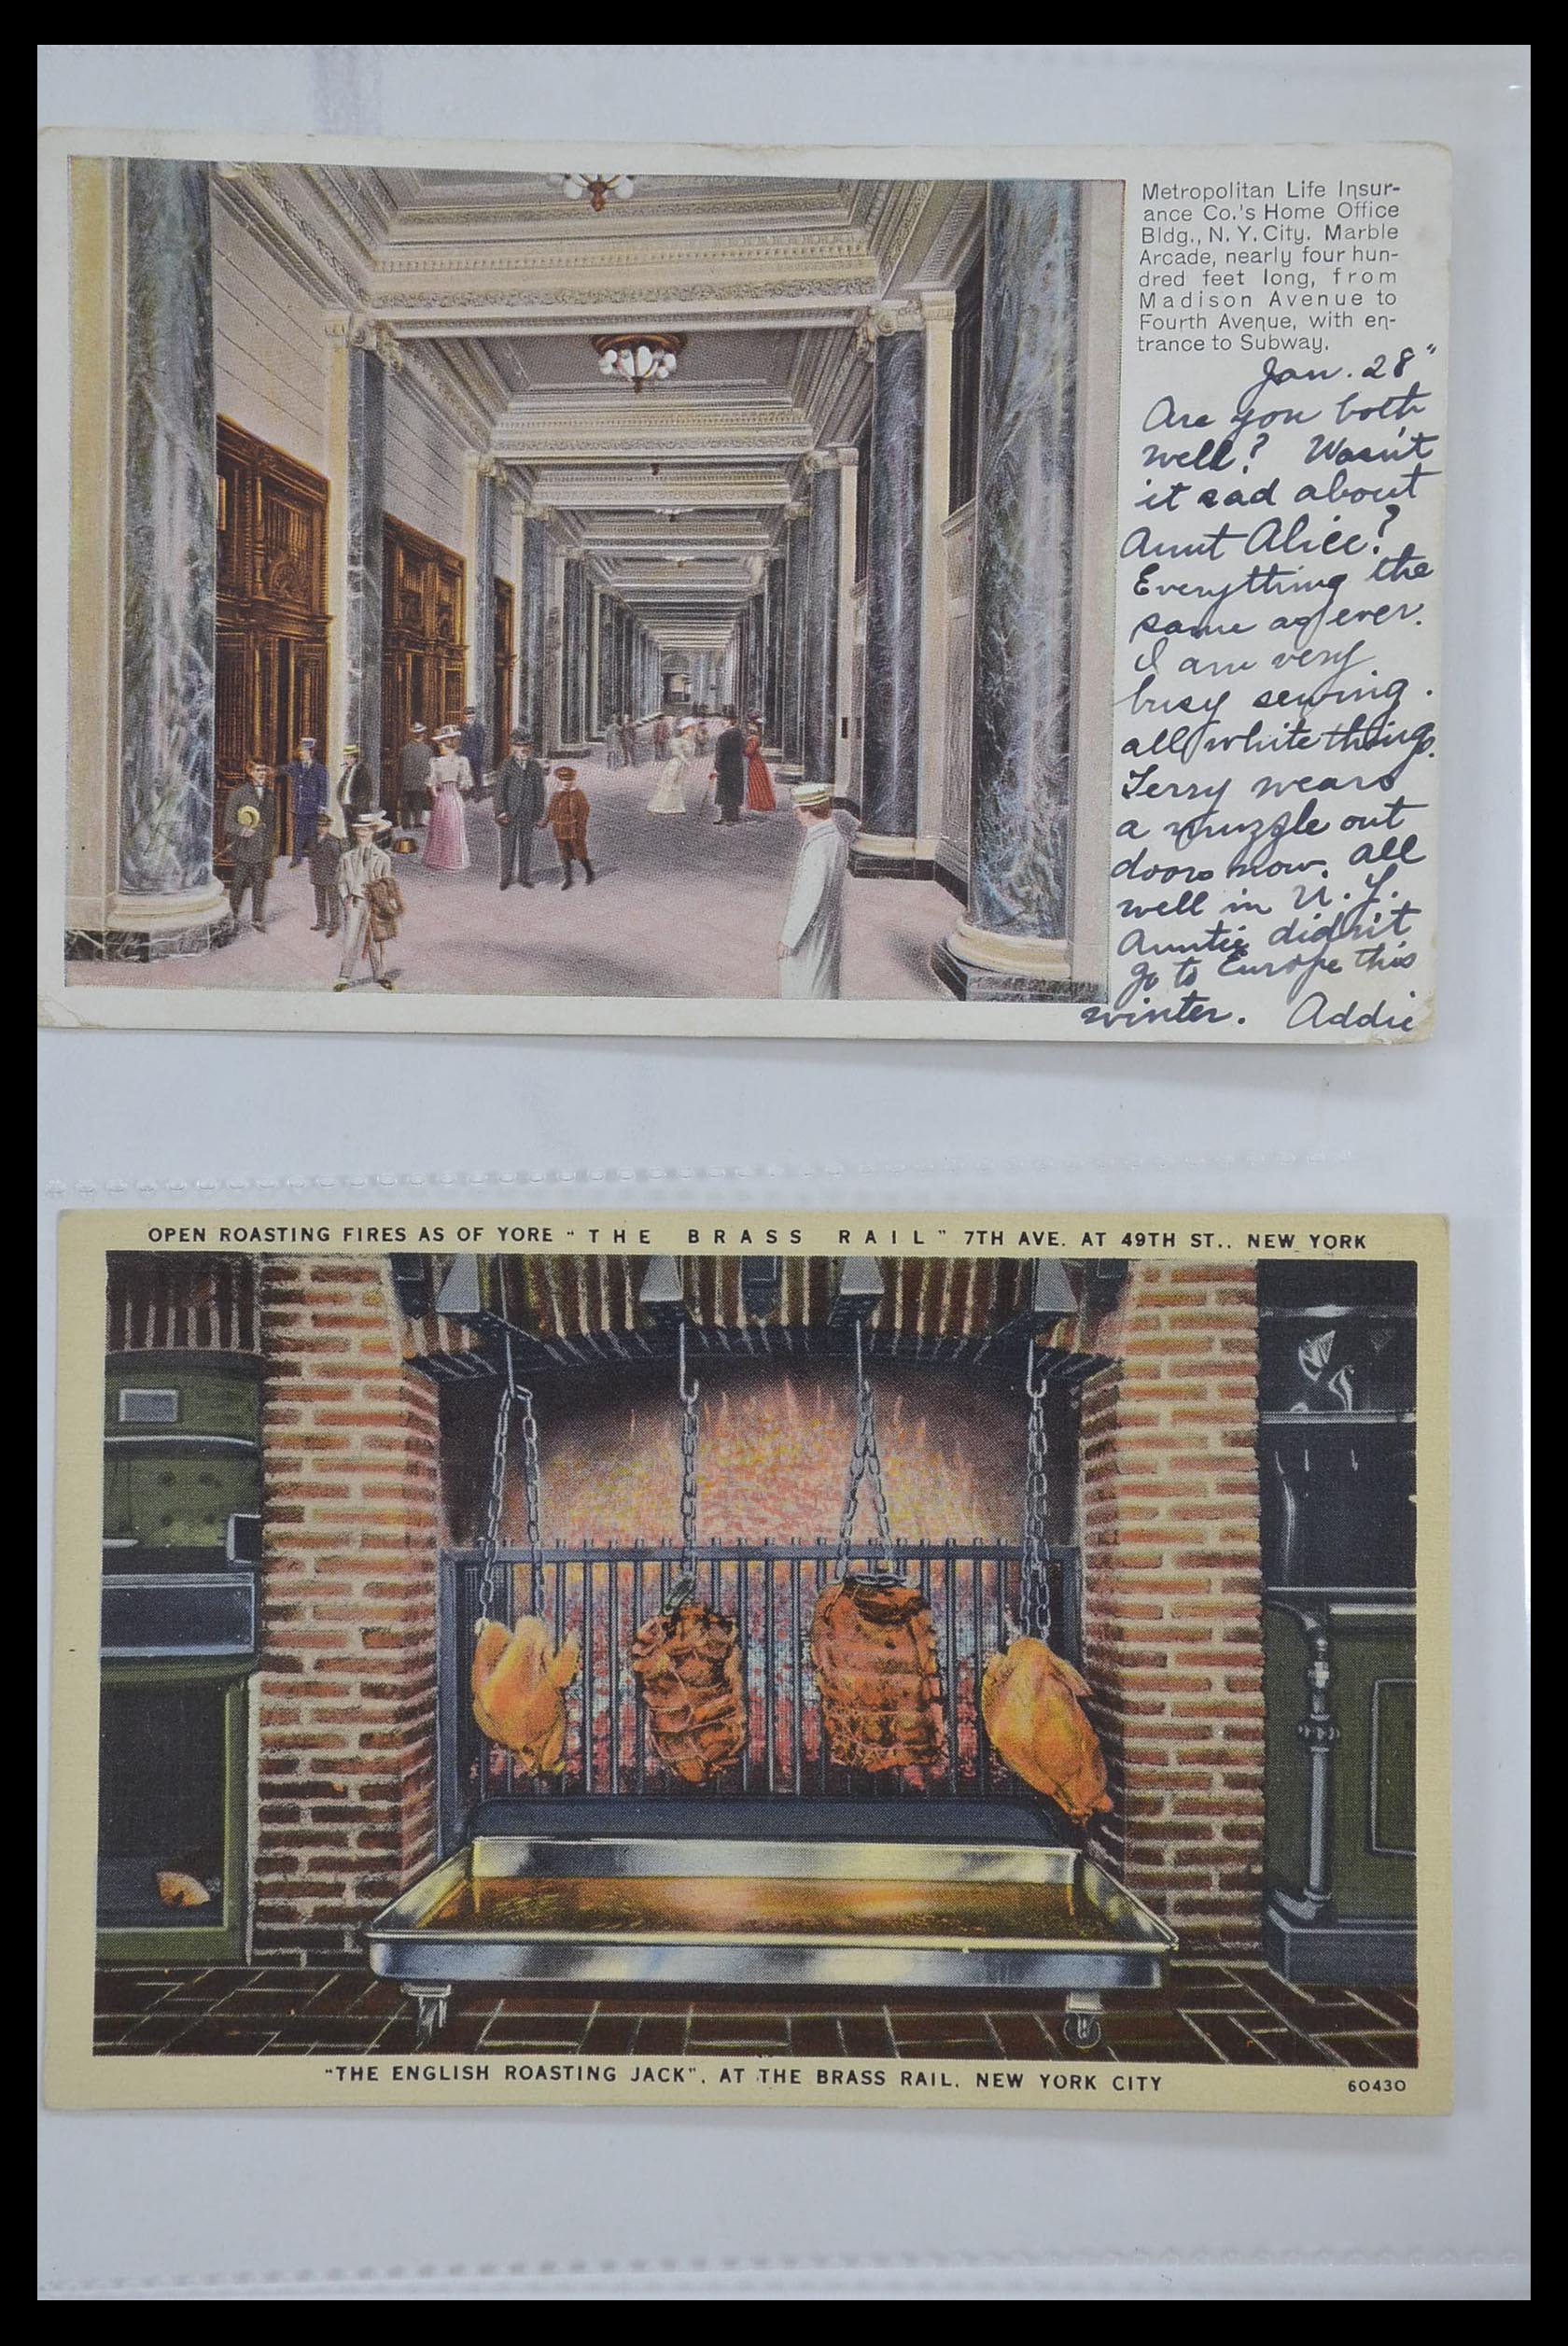 Metropolitan Life Insur-
ance Co.'s Home Office
Bldg., N. Y. City. Marble
Arcade, nearly four hun-
dred feet long, from
Madison Avenue to
Fourth Avenue, with en-
trance to Subway.
Jan. 28"
Are you both
well? Wasn't
it sad about
Aunt Alice?
Everything the
same as ever.
I am very
busy sewing.
all white things.
Terry wears
a muzzle out
doors now. All
well in N. Y.
Auntie didn't
go to Europe this
winter. Addie
OPEN ROASTING FIRES AS OF YORE "THE BRASS RAIL" 7TH AVE. AT 49TH ST., NEW YORK
"THE ENGLISH ROASTING JACK", AT THE BRASS RAIL, NEW YORK CITY
60430